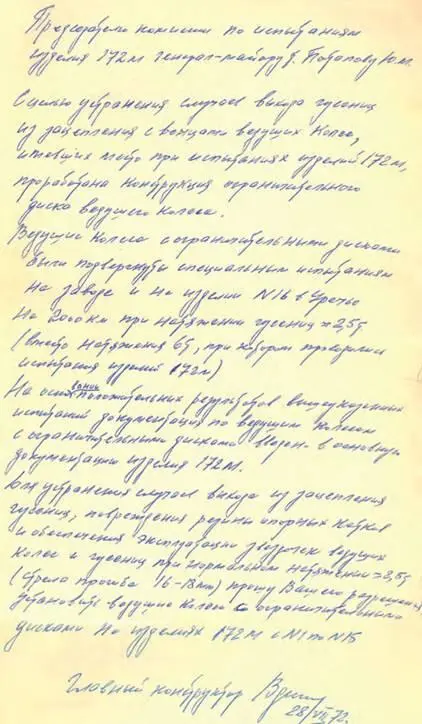 Председателю комиссии по испытаниям
изделия 172М генерал-майору т. Потапову Ю.М.
С целью устранения случаев выхода гусениц
из зацепления с венцами ведущих колес,
имевших место при испытаниях изделий 172М,
проработана конструкция ограничительного
диска ведущего колеса.
Ведущие колеса с ограничительными дисками
были подвергнуты специальным испытаниям
на заводе и на изделии N16 в
на 2000 км при натяжении гусениц = 2,5т
(вместо натяжения 6т, при котором проводились
испытания изделий 172М)
На основании положительных результатов вышеуказанных
испытаний документация по ведущим колесам
с ограничительными дисками введена в основную
документацию изделия 172М.
Для устранения случаев выхода из зацепления
гусениц, повреждения резины опорных катков
и обеспечения эксплуатации ведущих
колес и гусениц при нормальном натяжении = 2,5т
(стрела прогиба 16-18мм) прошу Вашего разрешения
установить ведущие колеса с ограничительными
дисками на изделиях 172М с N1 по N15
Главный конструктор
28/VII.72.